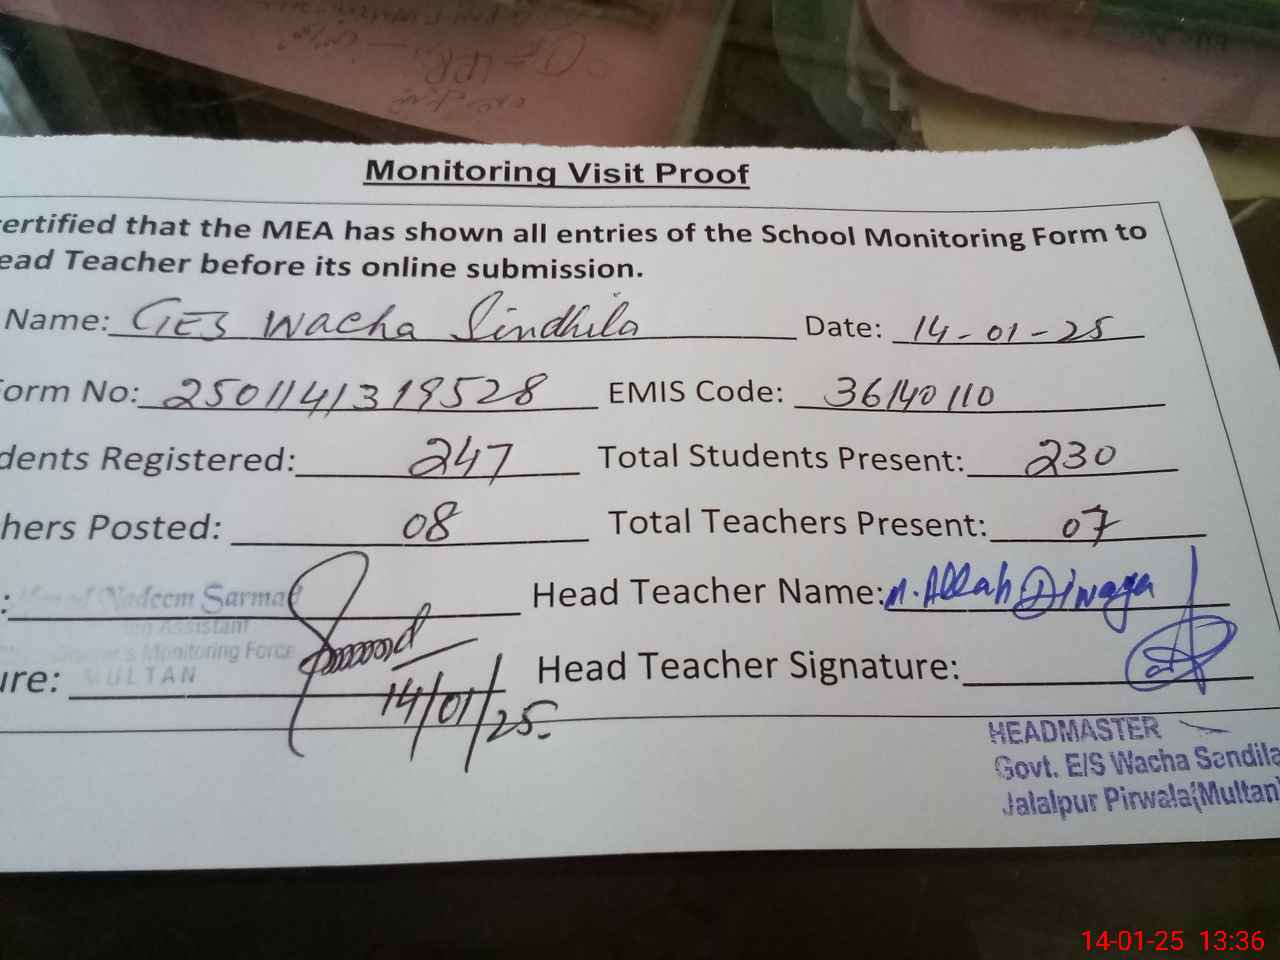 Monitoring Visit Proof
ertified that the MEA has shown all entries of the School Monitoring Form to
ead Teacher before its online submission.
Name: GES Wacha Sindhila Date: 14-01-25
orm No: 2501141319528 EMIS Code: 36140110
dents Registered: 247 Total Students Present: 230
hers Posted: 08 Total Teachers Present: 07
: Nadeem Sarmad Head Teacher Name: M. Allah Diwaya
Assistant
Monitoring Force
ure: MULTAN Head Teacher Signature:
14/01/25
HEADMASTER
Govt. E/S Wacha Sandila
Jalalpur Pirwala(Multan)
14-01-25 13:36